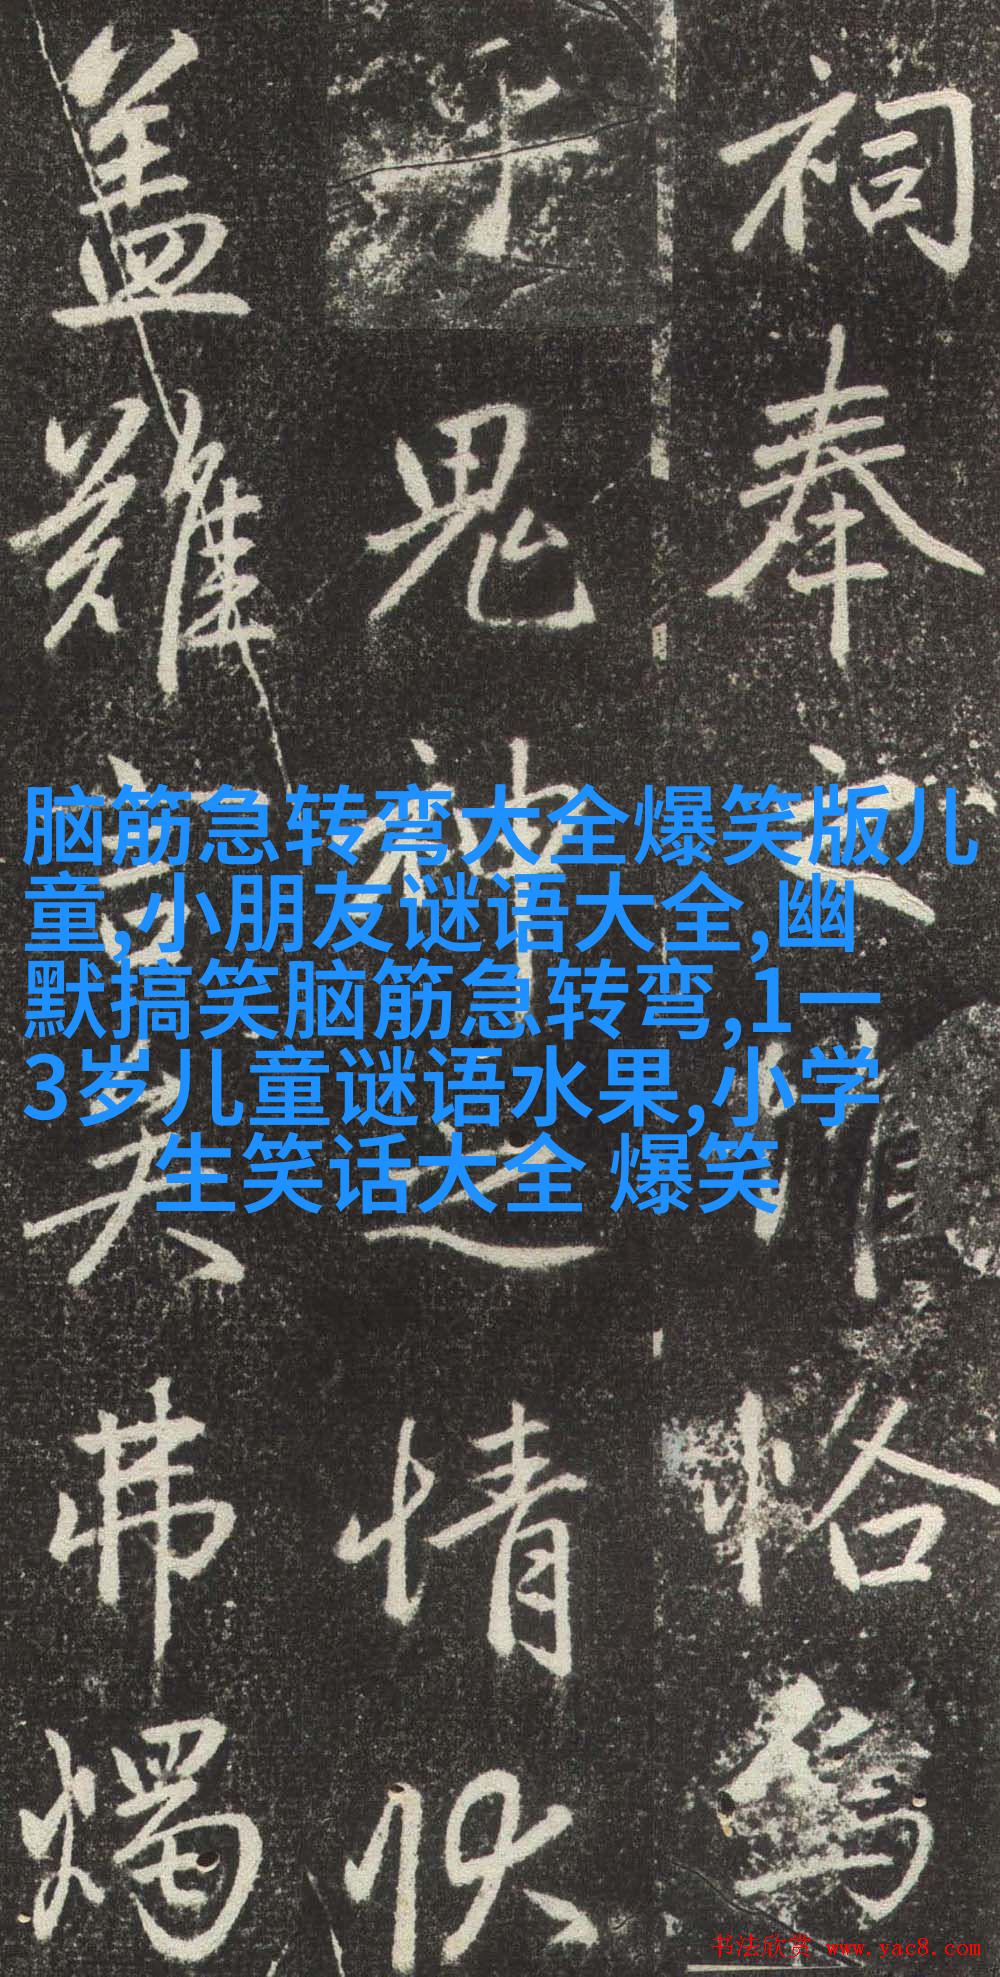 祠奉之惟恪焉
于鬼神之情状
盖難言矣弗燭
脑筋急转弯大全爆笑版儿
童,小朋友谜语大全,幽
默搞笑脑筋急转弯,1一
3岁儿童谜语水果,小学
生笑话大全 爆笑
书法欣赏 www.yac8.com